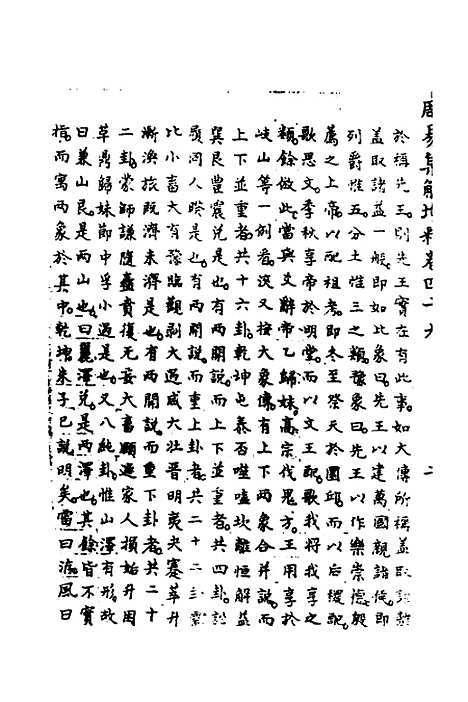 周易集解增釋卷四十六
於稱先王則先王實在有此事如大傳所稱蓋取諸離
蓋取諸益一般即如比象曰先王以建萬國親諸侯即
列爵惟五分土惟三之類豫象曰先王以作樂崇德殷
薦之上帝以配祖考即冬至祭天於圜邱而以后稷配
歌思文季秋享帝於明堂而以文王配歌我將我享之
類餘倣此當與爻辭帝乙歸妹高宗伐鬼方王用享於
岐山等一例看沒又按大象傳有上下兩象合并說而
上下並重者共十六卦乾坤屯泰否噬嗑坎離恒解益
巽艮豐震兌是也有兩開說而並重者共四卦訟
頤同人睽是也有兩開說而重上卦者共二十二
比小畜大有豫臨觀剝大過咸大壯晉明夷夬蹇萃升
漸渙旅既濟未濟是也有兩開說而重下卦者共二十
二卦蒙師謙隨蠱賁復无妄大畜頤遯家人損姤升困
革鼎歸妹節中孚小過是也又八純卦惟山澤有形故
曰兼山艮是兩山也曰麗澤兌是兩澤也其餘皆不實
指而寓兩象於其中乾坤朱子已說明矣雷曰洊風曰